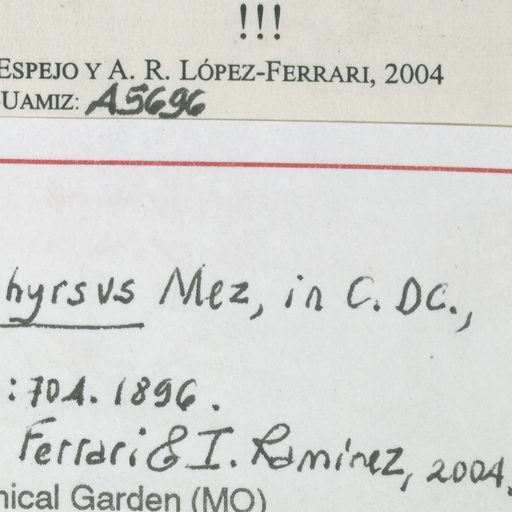 !!!
ESPEJO Y A. R. LÓPEZ-FERRARI, 2004
UAMIZ: A5696
hyrsus Mez, in C. DC.,
: 704. 1896.
Ferrari & I. Ramírez, 2004.
nical Garden (MO)